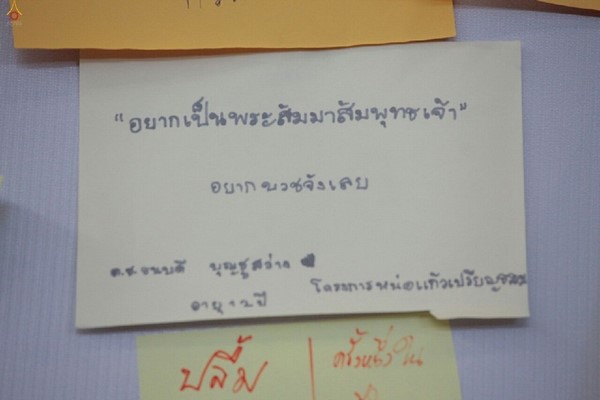 "อยากเป็นพระสัมมาสัมพุทธเจ้า"
อยากบวชจังเลย
ด.ช.ธนบดี บุญชูสว่าง
โครงการหน่อแก้วเปรียญธรรม
อายุ ๑๒ ปี
ปลื้ม
ครั้งหนึ่งใน